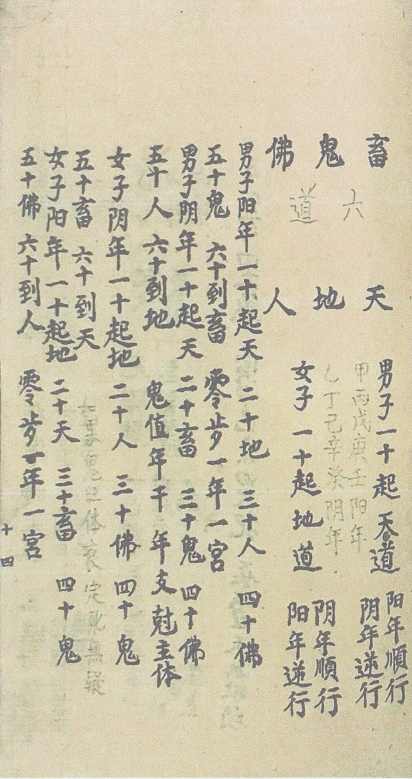 畜 鬼 佛
六道
天 地 人
男子一十起天道 阳年順行 阴年逆行
甲丙戊庚壬阳年
乙丁己辛癸阴年
女子一十起地道 阴年順行 阳年逆行
男子阳年一十起天 二十地 三十人 四十佛
五十鬼 六十到畜 零步一年一宫
男子阴年一十起天 二十畜 三十鬼 四十佛
五十人 六十到地 鬼值年干年支尅主体
女子阴年一十起地 二十人 三十佛 四十鬼
五十畜 六十到天
体衰定死無疑
女子阳年一十起地 二十天 三十畜 四十鬼
五十佛 六十到人 零步一年一宫
十四